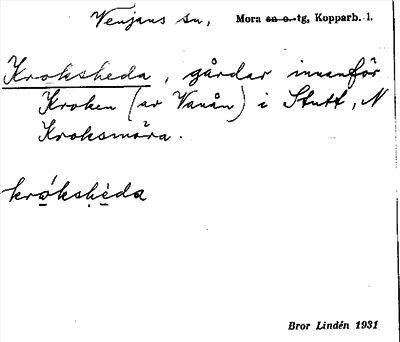 Venjans sn, Mora sn o. tg, Kopparb. l.
Kroksheda, gårdar innanför
Kroken (av Vanån) i Stutt, N
Kroksmöra.
krókshèda
Bror Lindén 1931